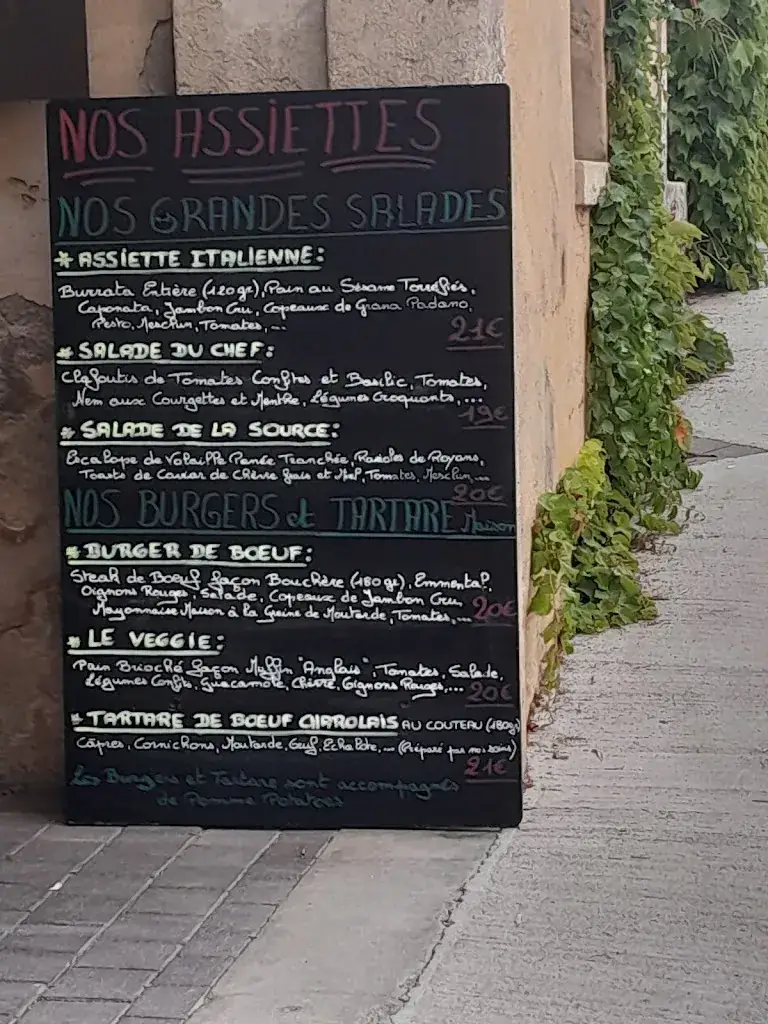 NOS ASSIETTES
NOS GRANDES SALADES
* ASSIETTE ITALIENNE:
Burrata Entière (120gr), Pain au Sésame Torréfiés,
Caponata, Jambon Cru, Copeaux de Grana Padano,
Pesto, Mesclun, Tomates,...
21€
* SALADE DU CHEF:
Clafoutis de Tomates Confites et Basilic, Tomates,
Nem aux Courgettes et Menthe, Légumes Croquants,...
19€
* SALADE DE LA SOURCE:
Escalope de Volaille Panée Tranchée, Ravioles de Royans,
Toasts de Caviar de Chèvre frais et Miel, Tomates, Mesclun,...
20€
NOS BURGERS et TARTARE Maison
* BURGER DE BOEUF:
Steak de Boeuf façon Bouchère (180gr), Emmental,
Oignons Rouges, Salade, Copeaux de Jambon Cru,
Mayonnaise Maison à la Graine de Moutarde, Tomates,... 20€
* LE VEGGIE:
Pain Brioché façon Muffin "Anglais", Tomates, Salade,
Légumes Confits, Guacamole, Chèvre, Oignons Rouges,...
20€
* TARTARE DE BOEUF CHAROLAIS AU COUTEAU (180gr)
Câpres, Cornichons, Moutarde, Oeuf, Echalote,... (Préparé par nos soins)
21€
Les Burgers et Tartare sont accompagnés
de Pomme Potatoes